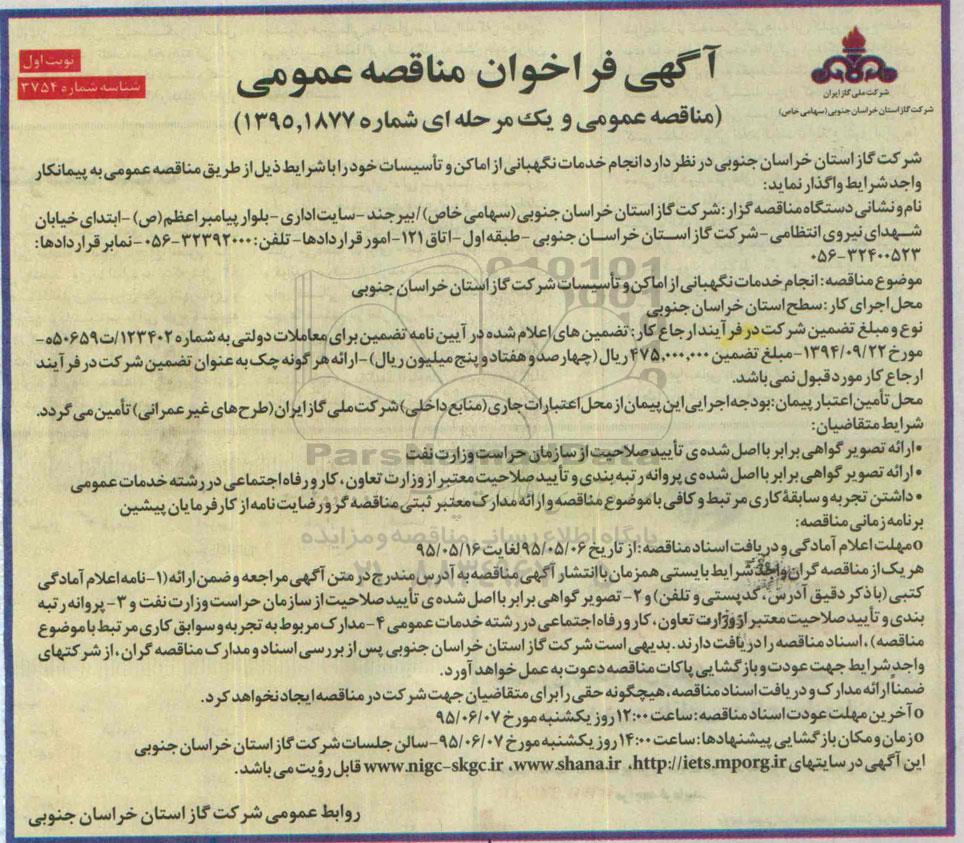 نوبت اول
شناسه شماره ۳۷۵۴
شرکت ملی گاز ایران
شرکت گاز استان خراسان جنوبی (سهامی خاص)
آگهی فراخوان مناقصه عمومی
(مناقصه عمومی و یک مرحله ای شماره ۱۳۹۵,۱۸۷۷)
شرکت گاز استان خراسان جنوبی در نظر دارد انجام خدمات نگهبانی از اماکن و تأسیسات خود را با شرایط ذیل از طریق مناقصه عمومی به پیمانکار
واجد شرایط واگذار نماید:
نام و نشانی دستگاه مناقصه گزار: شرکت گاز استان خراسان جنوبی (سهامی خاص)/ بیرجند - سایت اداری - بلوار پیامبر اعظم (ص) - ابتدای خیابان
شهدای نیروی انتظامی - شرکت گاز استان خراسان جنوبی - طبقه اول - اتاق ۱۲۱- امور قراردادها - تلفن: ۳۲۳۹۲۰۰۰-۰۵۶ نمابر قراردادها:
۰۵۶-۳۲۴۰۰۵۲۳
موضوع مناقصه: انجام خدمات نگهبانی از اماکن و تأسیسات شرکت گاز استان خراسان جنوبی
محل اجرای کار: سطح استان خراسان جنوبی
نوع و مبلغ تضمین شرکت در فرآیند ارجاع کار: تضمین های اعلام شده در آیین نامه تضمین برای معاملات دولتی به شماره ۱۲۳۴۰۲/ت۵۰۶۵۹ه-
مورخ ۱۳۹۴/۰۹/۲۲ - مبلغ تضمین ۴۷۵,۰۰۰,۰۰۰ ریال (چهارصد و هفتاد و پنج میلیون ریال) - ارائه هر گونه چک به عنوان تضمین شرکت در فرآیند
ارجاع کار مورد قبول نمی باشد.
محل تأمین اعتبار پیمان: بودجه اجرایی این پیمان از محل اعتبارات جاری (منابع داخلی) شرکت ملی گاز ایران (طرح های غیر عمرانی) تأمین می گردد.
شرایط متقاضیان:
•ارائه تصویر گواهی برابر با اصل شده ی تأیید صلاحیت از سازمان حراست وزارت نفت
•ارائه تصویر گواهی برابر با اصل شده ی پروانه رتبه بندی و تأیید صلاحیت معتبر از وزارت تعاون، کار و رفاه اجتماعی در رشته خدمات عمومی
•داشتن تجربه و سابقهٔ کاری مرتبط و کافی با موضوع مناقصه و ارائه مدارک معتبر ثبتی مناقصه گر و رضایت نامه از کارفرمایان پیشین
برنامه زمانی مناقصه:
oمهلت اعلام آمادگی و دریافت اسناد مناقصه: از تاریخ ۹۵/۰۵/۰۶ لغایت ۹۵/۰۵/۱۶
هر یک از مناقصه گران واجد شرایط بایستی همزمان با انتشار آگهی مناقصه به آدرس مندرج در متن آگهی مراجعه و ضمن ارائه (۱-نامه اعلام آمادگی
کتبی (با ذکر دقیق آدرس، کدپستی و تلفن) و ۲- تصویر گواهی برابر با اصل شده ی تأیید صلاحیت از سازمان حراست وزارت نفت و ۳- پروانه رتبه
بندی و تأیید صلاحیت معتبر از وزارت تعاون، کار و رفاه اجتماعی در رشته خدمات عمومی ۴- مدارک مربوط به تجربه و سوابق کاری مرتبط با موضوع
مناقصه)، اسناد مناقصه را دریافت دارند. بدیهی است شرکت گاز استان خراسان جنوبی پس از بررسی اسناد و مدارک مناقصه گران، از شرکتهای
واجد شرایط جهت عودت و بازگشایی پاکات مناقصه دعوت به عمل خواهد آورد.
ضمناً ارائه مدارک و دریافت اسناد مناقصه، هیچگونه حقی را برای متقاضیان جهت شرکت در مناقصه ایجاد نخواهد کرد.
oآخرین مهلت عودت اسناد مناقصه: ساعت ۱۲:۰۰ روز یکشنبه مورخ ۹۵/۰۶/۰۷
oزمان و مکان بازگشایی پیشنهادها: ساعت ۱۴:۰۰ روز یکشنبه مورخ ۹۵/۰۶/۰۷ - سالن جلسات شرکت گاز استان خراسان جنوبی
این آگهی در سایتهای http://iets.mporg.ir ،www.shana.ir ،www.nigc-skgc.ir قابل رؤیت می باشد.
روابط عمومی شرکت گاز استان خراسان جنوبی
پایگاه اطلاع رسانی مناقصه و مزایده